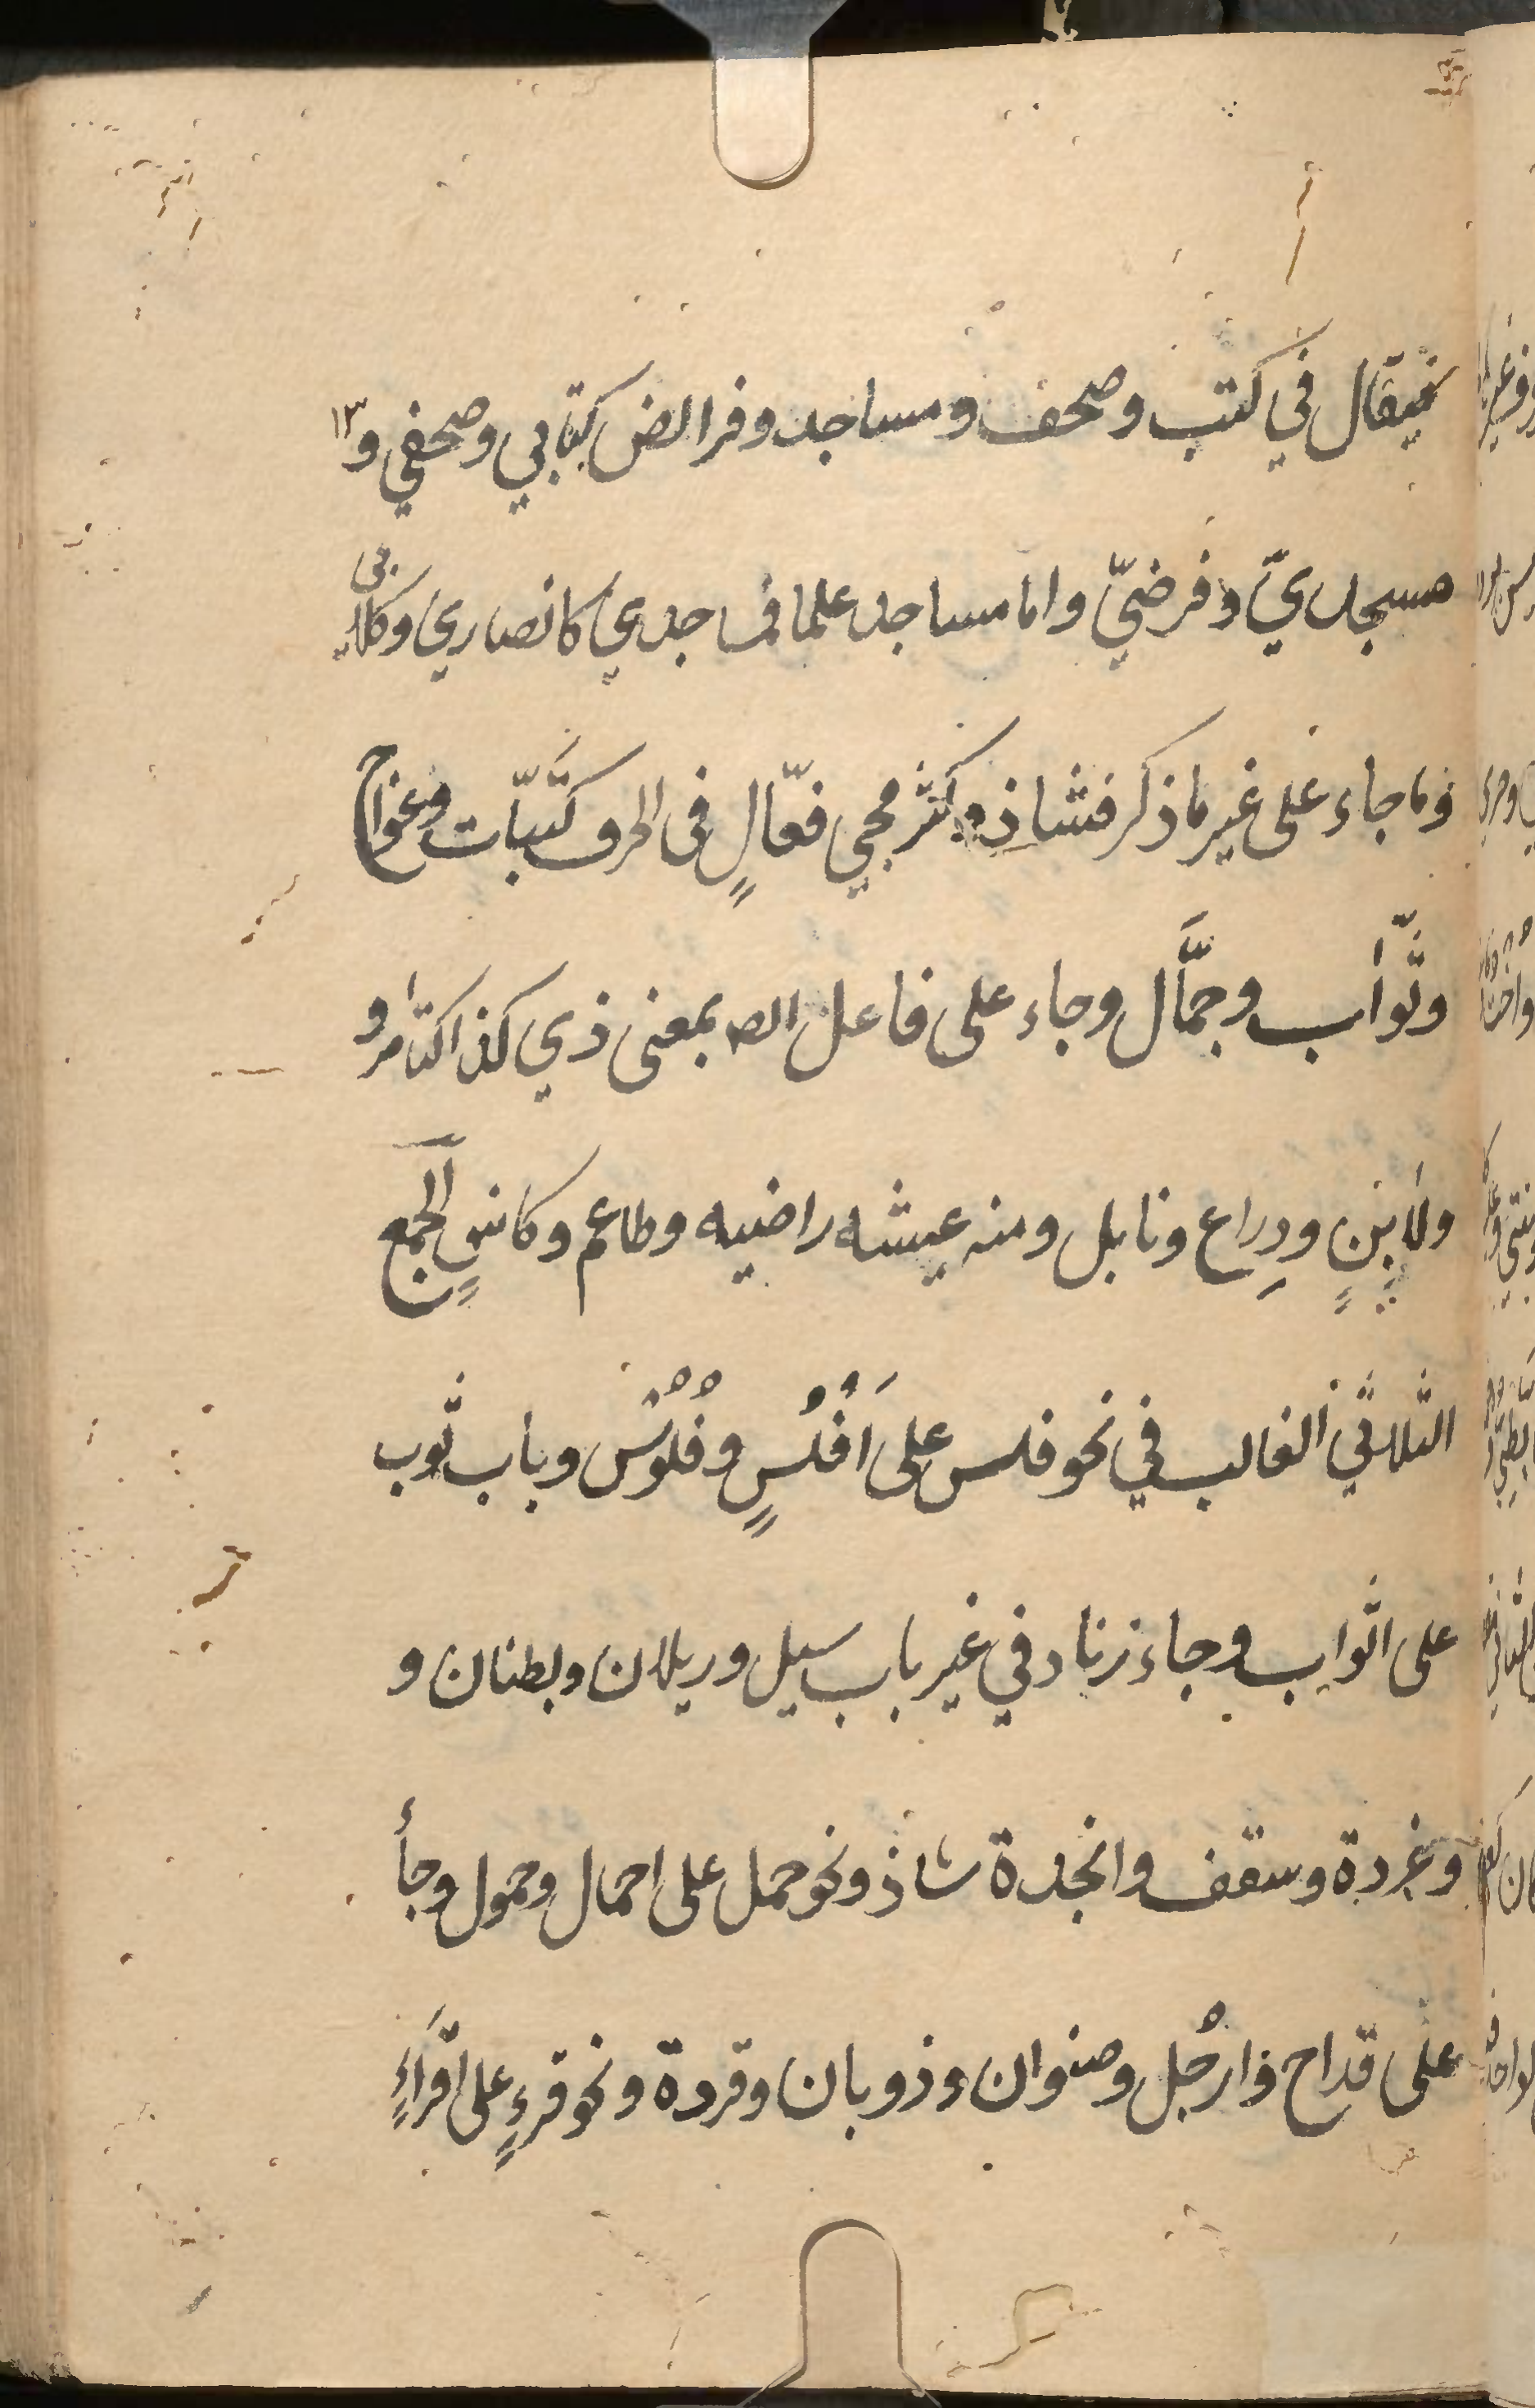 فيقال في كتب وصحف ومساجد وفرائض كتابي وصحفي و
مسجديّ وفرضيّ واما مساجد علما فمساجدي كانصاري وكلابي
وما جاء على غير ما ذكر فشاذ وكثر مجي فعّالٍ في الحرف كبتّات وعواج
وثوّاب وجمَّال وجاء على فاعل ايض بمعنى ذي كذا كتامر و
ولابنٍ ودراع ونابل ومنه عيشه راضيه وطاعم وكاسٍ الجمع
الثلاثي الغالب في نحو فلس على اَفْلُسٍ وفُلُوْس وباب ثوب
على اثواب وجاء زناد في غير باب سيل وريلان وبطنان و
وغردة وسقف وانجدة شاذ ونحو حمل على احمال وحمول وجأ
على قداح وارجُل وصنوان وذوبان وقردة ونحو قرءٍ على اقرَاءٍ